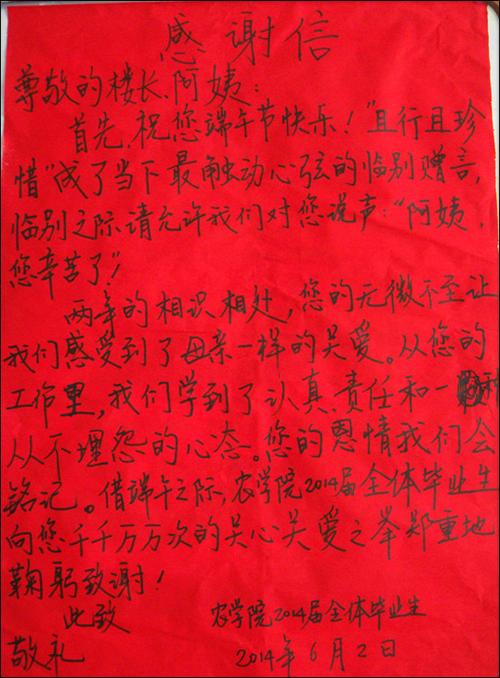 感谢信
尊敬的楼长、阿姨：
首先，祝您端午节快乐！"且行且珍
惜"成了当下最触动心弦的临别赠言，
临别之际请允许我们对您说声："阿姨，
您辛苦了！"
两年的相识相处，您的无微不至让
我们感受到了母亲一样的关爱。从您的
工作里，我们学到了认真、责任和一
从不埋怨的心态。您的恩情我们会
铭记。借端午之际，农学院2014届全体毕业生
向您千千万万次的关心关爱之举郑重地
鞠躬致谢！
此致 农学院2014届全体毕业生
敬礼 2014年6月2日